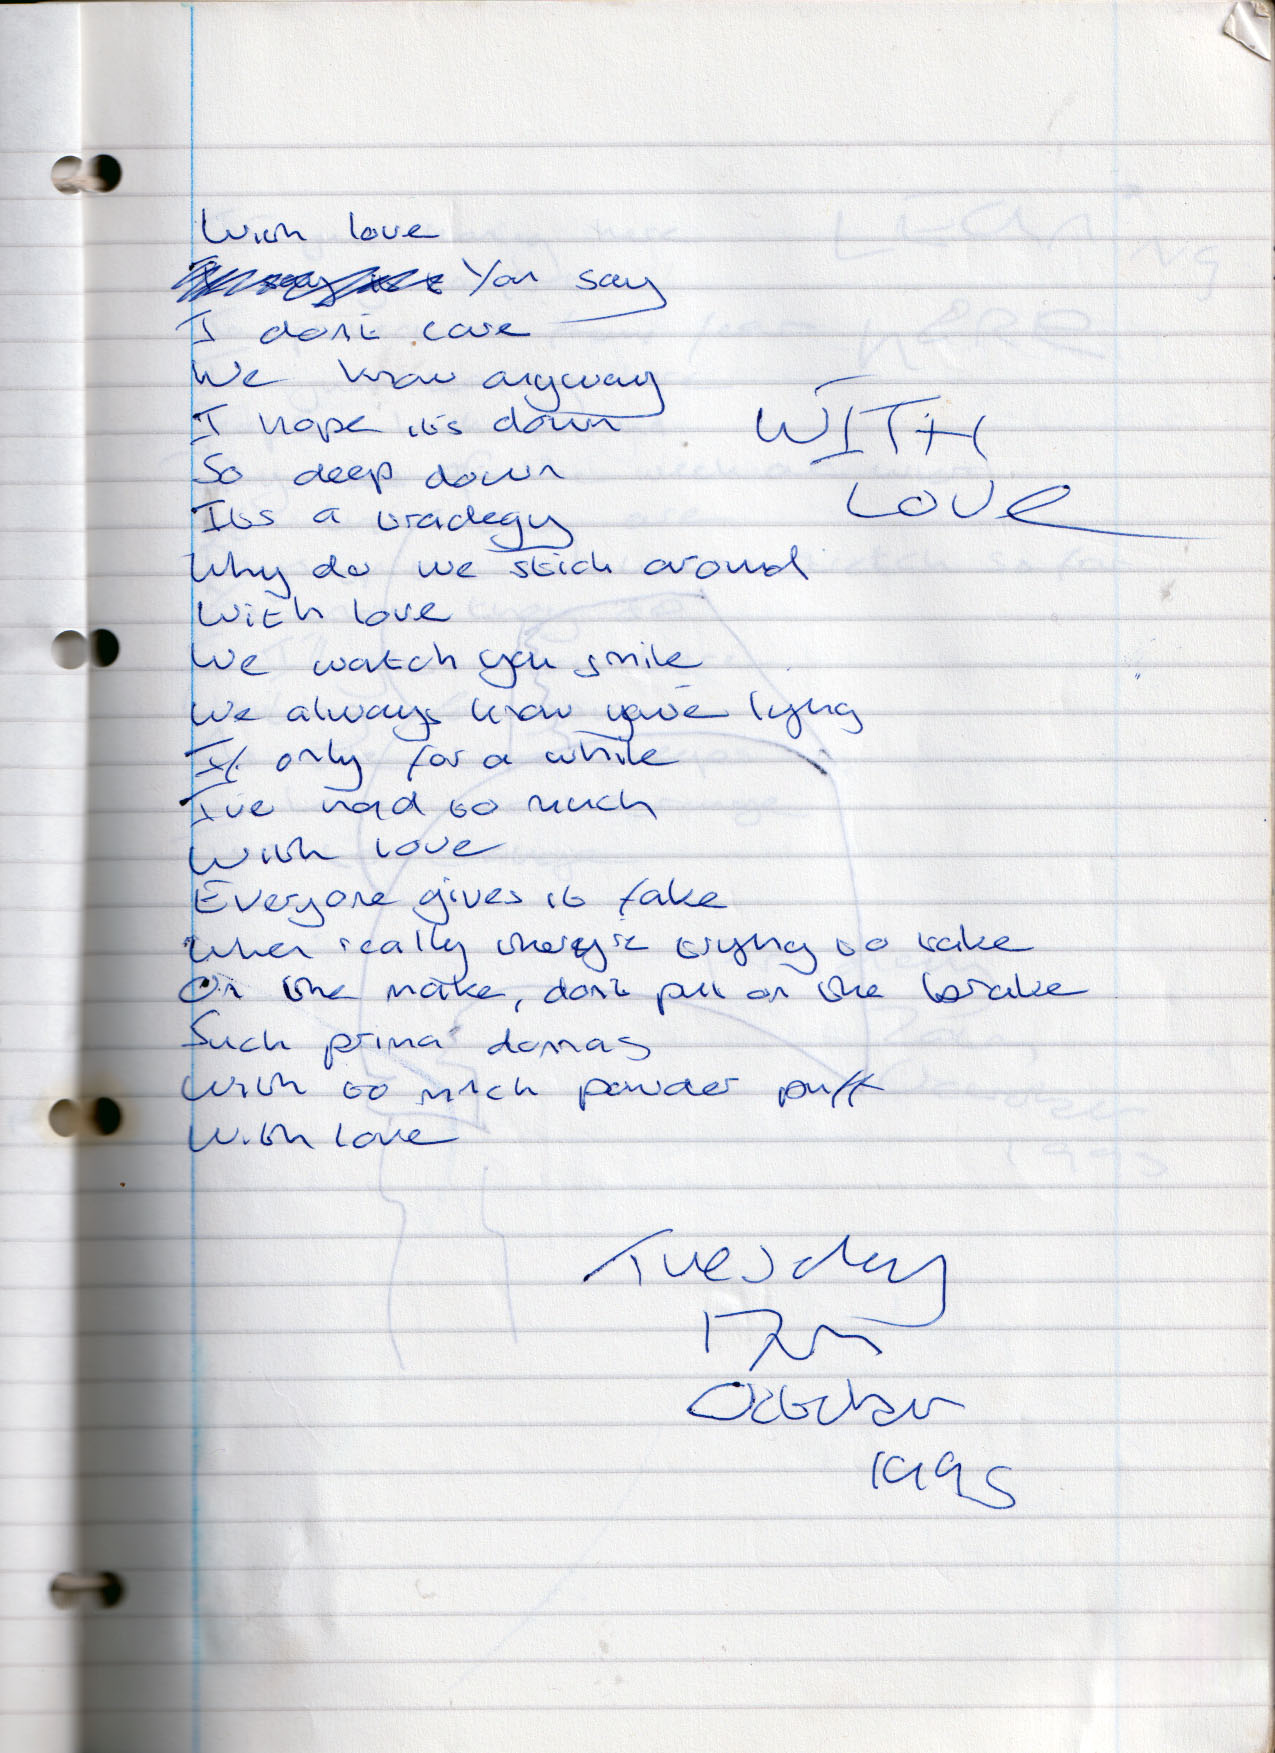 With love
You say
I don't care
We know anyway
I hope it's down
So deep down
It's a tradegy
Why do we stick around
With love
We watch you smile
We always know you're lying
If only for a while
I've had so much
With love
Everyone gives it fake
When really they're trying to take
On the make, don't pull on the brake
Such prima donnas
With so much powder puff
With love
WITH
LOVE
Tuesday
17th
October
1995